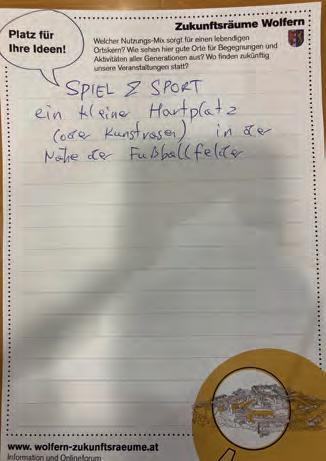 Platz für
Ihre Ideen!
Zukunftsräume Wolfern
Welcher Nutzungs-Mix sorgt für einen lebendigen
Ortskern? Wie sehen hier gute Orte für Begegnungen und
Aktivitäten aller Generationen aus? Wo finden zukünftig
unsere Veranstaltungen statt?
SPIEL & SPORT
ein kleiner Hartplatz
(oder Kunstrasen) in der
Nähe der Fußballfelder
www.wolfern-zukunftsraeume.at
Information und Onlineforum